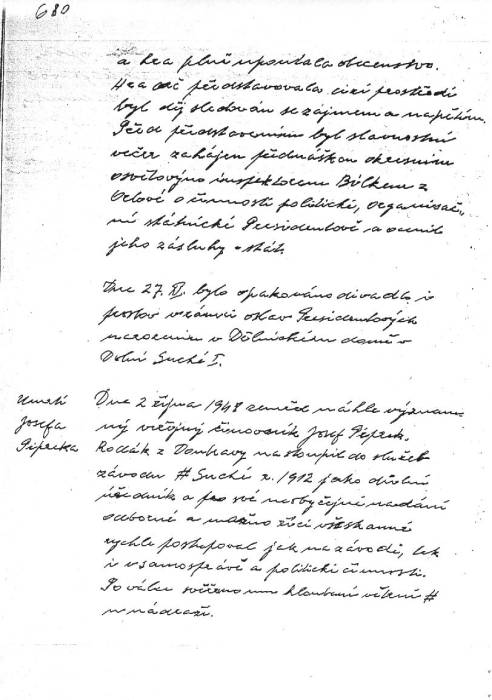 680
a hra plně upoutala obecenstvo.
Hra ač představovala cizí prostředí
byl děj sledován se zájmem a napětím.
Před představením byl slavnostní
večer zahájen přednáškou okresním
osvětovým inspektorem Bílkem z
Orlové o činnosti politické, organisač-
ní státnické Presidentově a ocenil
jeho zásluhy o stát.
Dne 27. XI. bylo opakováno divadlo i
proslov v rámci oslav Presidentových
narozenin v Dělnickém domě v
Dolní Suché I.
Úmrtí
Josefa
Pipreka
Dne 2 října 1948 zemřel náhle význam-
ný veřejný činovník Josef Piprek.
Rodák z Doubravy nastoupil do služeb
závodu # Suchá r. 1912 jako důlní
úředník a pro své neobyčejné nadání
odborné a možno říci všestranné
rychle postupoval jak na závodě, tak
i v samosprávě a politické činnosti.
Po válce svěřeno mu hloubení větrní #
u nádraží.